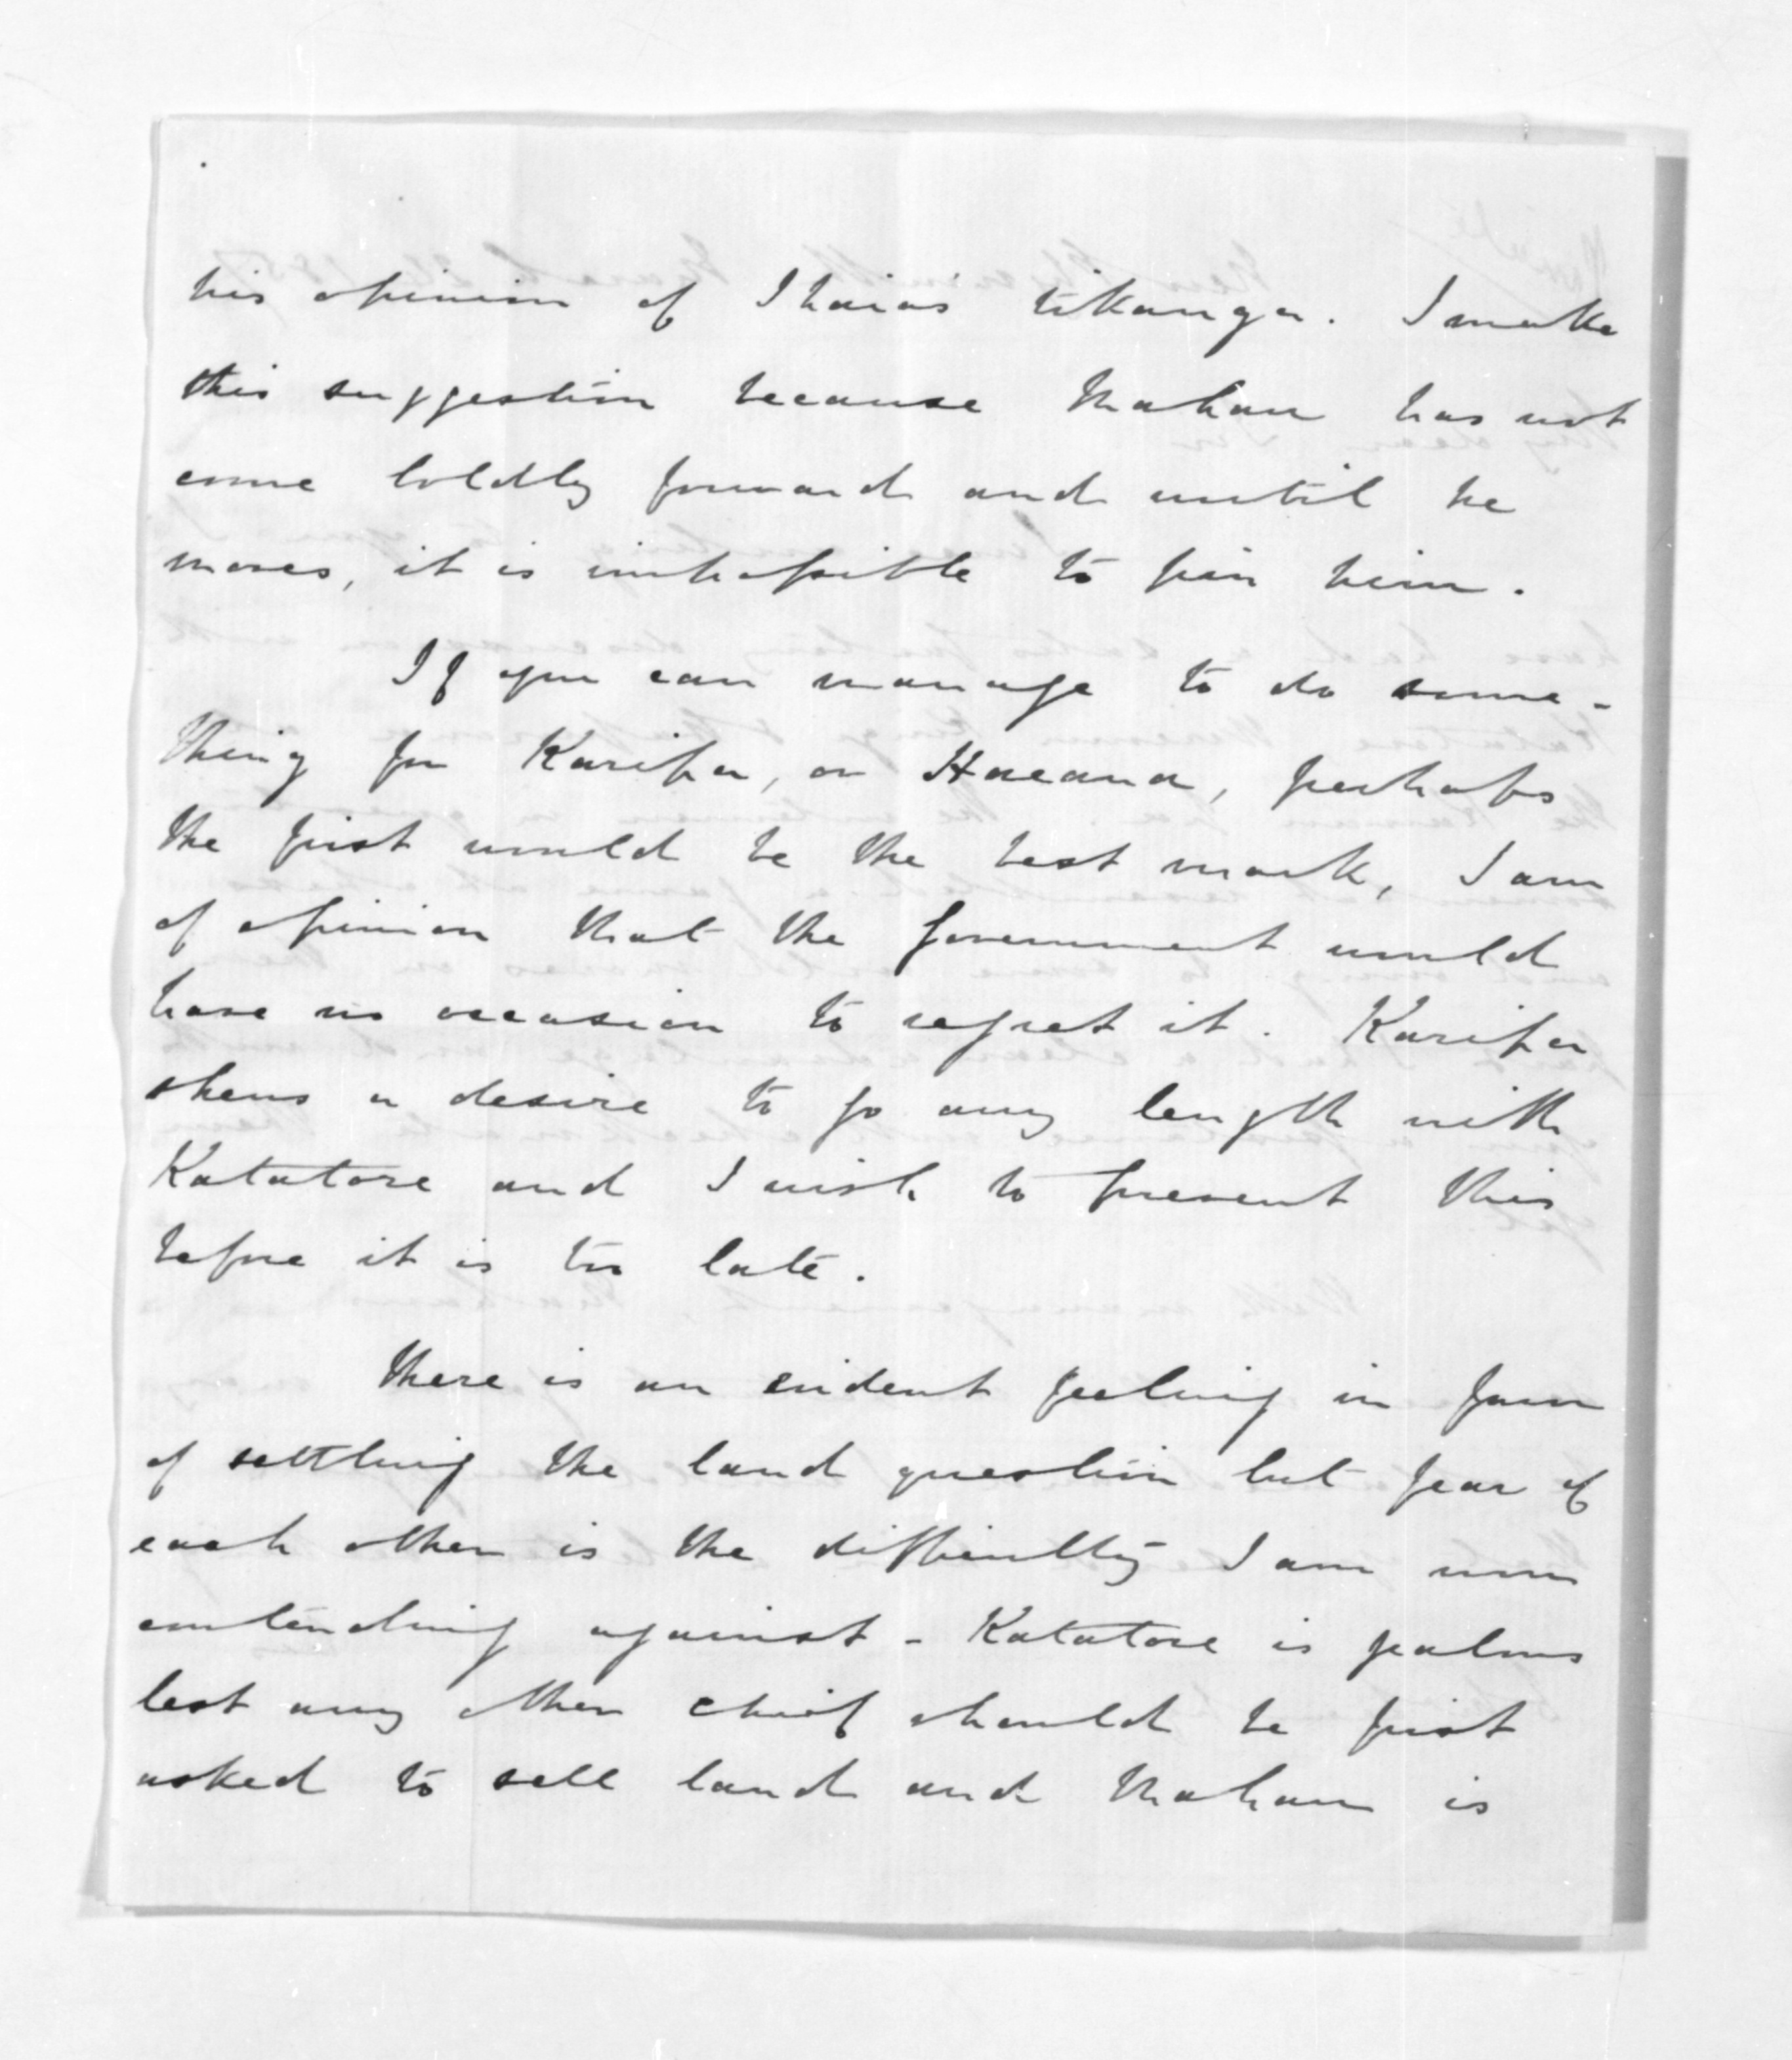 his opinion of Ihaias tikanga. I make
this suggestion because Mahau has not
come boldly forward and until he
moves, it is impossible to pin him.
If you can manage to do some-
thing for Karipa, or Haeana, perhaps
the first would be the best mark, I am
of opinion that the Government would
have no occasion to regret it. Karipa
shews a desire to go any length with
Katatore and I wish to prevent this
before it is too late.
There is an evident feeling in favor
of settling the land question but fear of
each other is the difficulty I am now
contending against - Katatore is jealous
lest any other chief should be first
asked to sell land and Mahau is